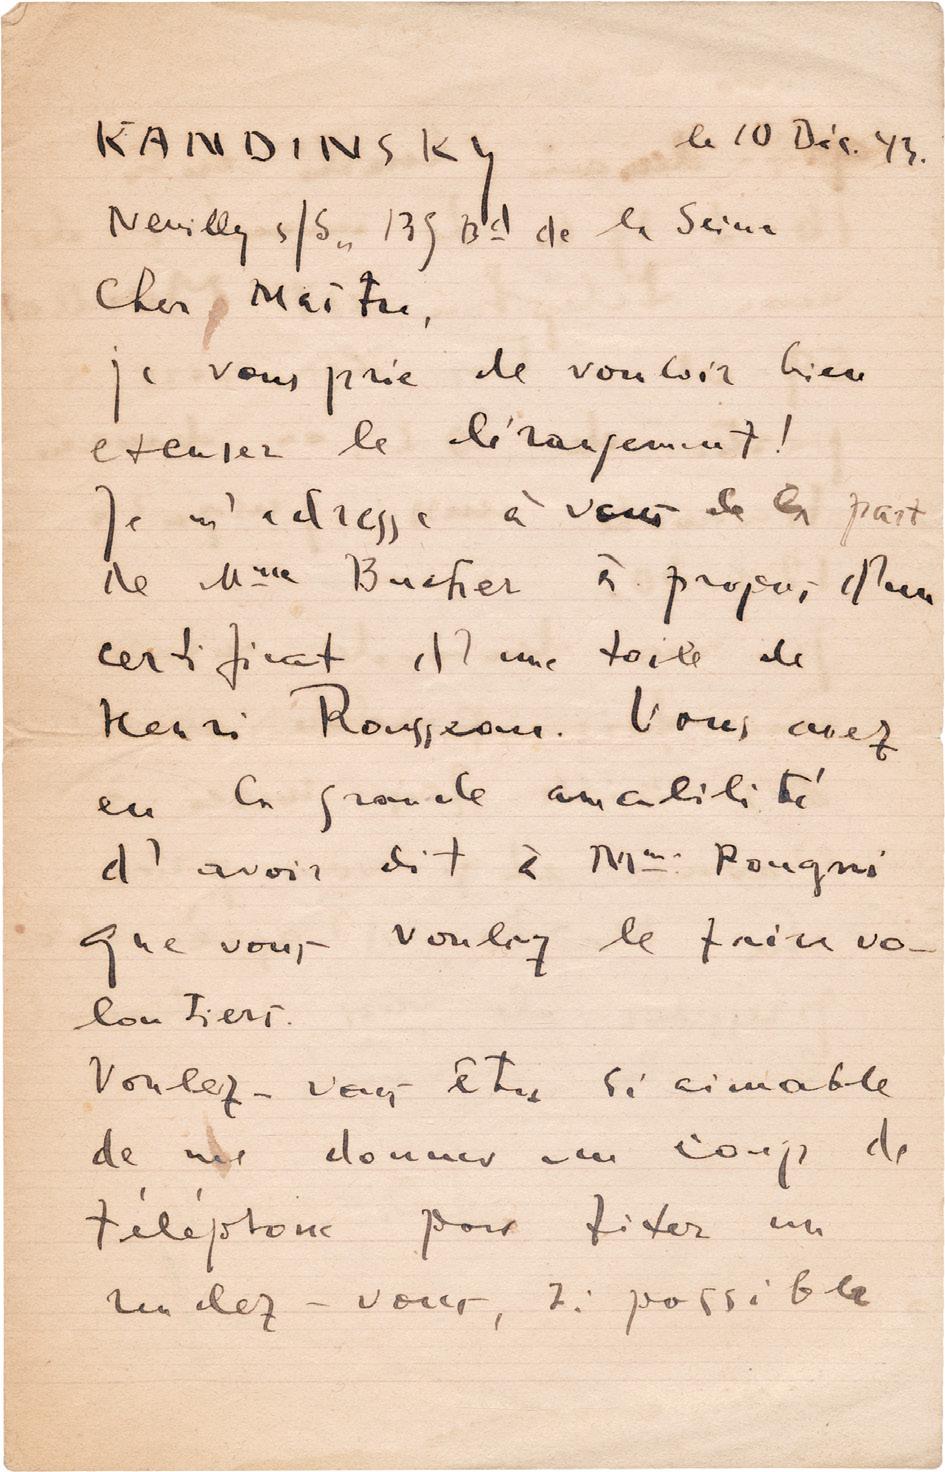 KANDINSKY le 10 Déc. 43.
Neuilly s/S., 135 Bd de la Seine
Cher Maître,
je vous prie de vouloir bien
excuser le dérangement!
Je m'adresse à vous de la part
de Mme Bucher à propos d'un
certificat d'une toile de
Henri Rousseau. Vous avez
eu la grande amabilité
d'avoir dit à Mme Pougni
que vous voulez le faire vo-
lontiers.
Voulez-vous être si aimable
de me donner un coup de
téléphone pour fixer un
rendez-vous, si possible